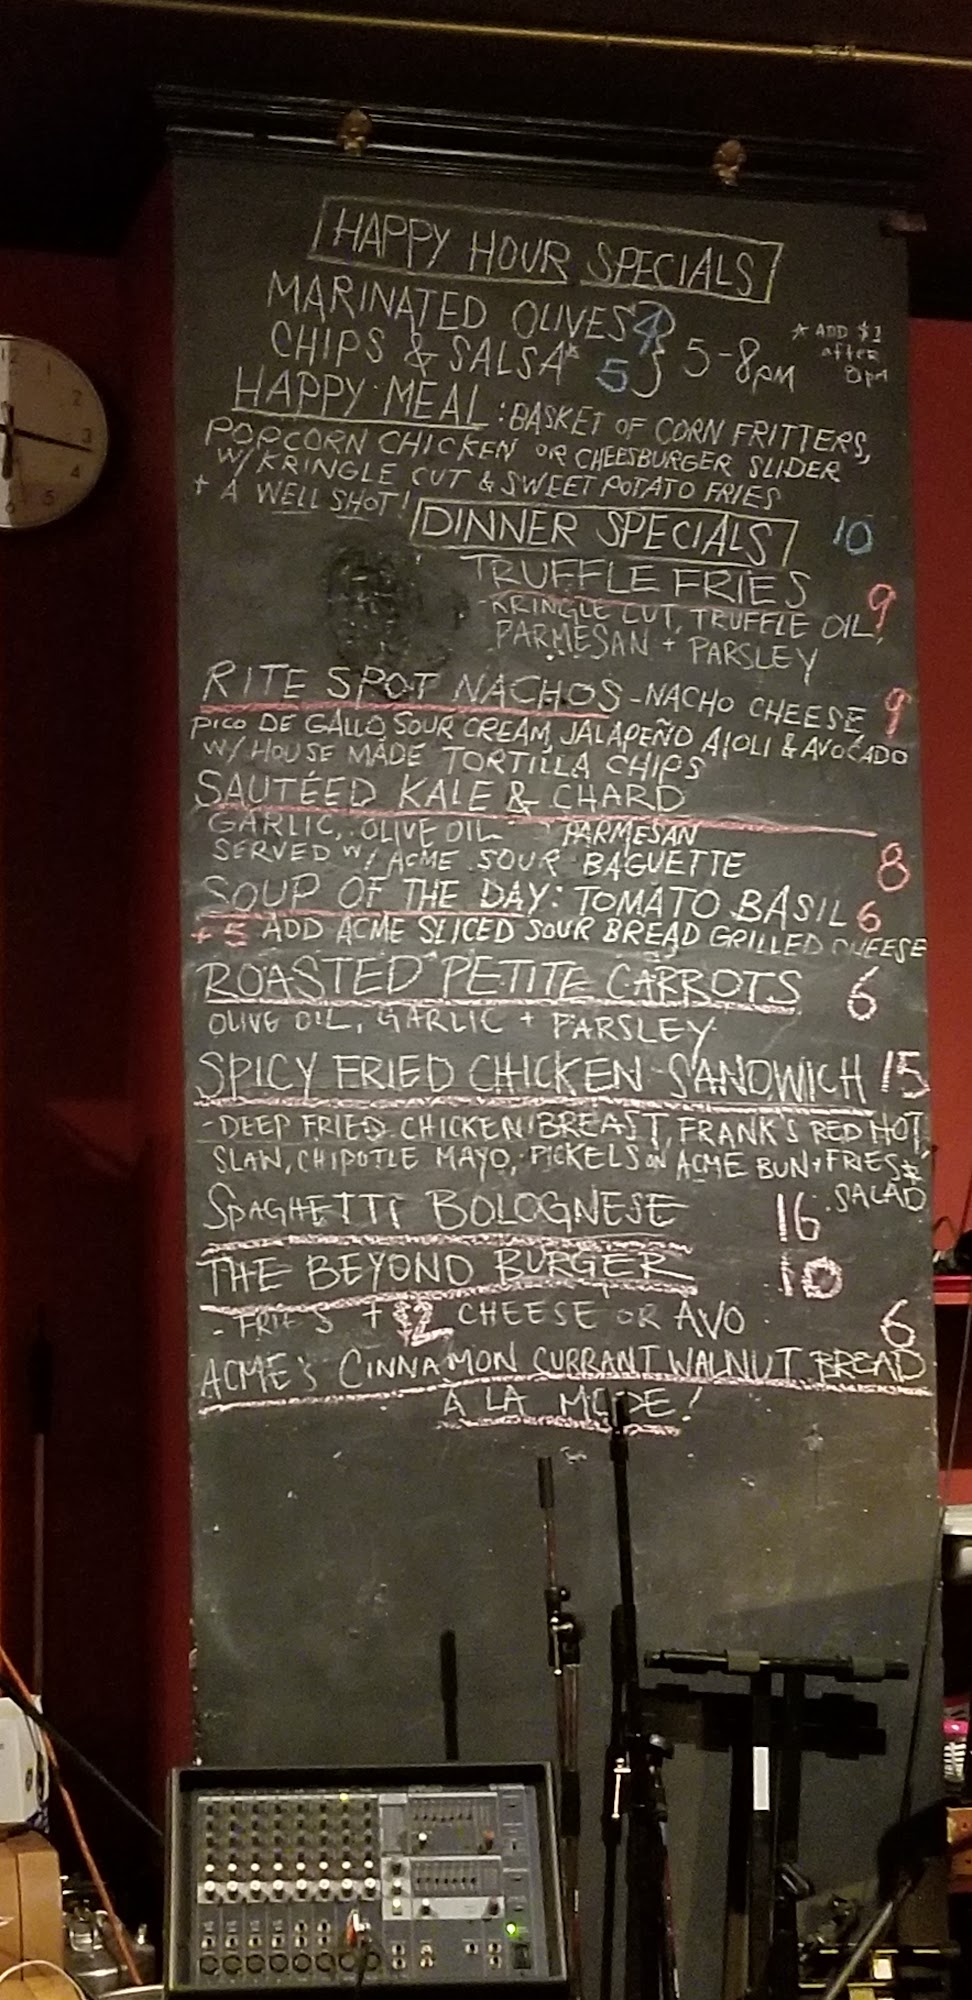 HAPPY HOUR SPECIALS
MARINATED OLIVES 4
CHIPS & SALSA* 5 } 5-8PM
* ADD $1
after
8pm
HAPPY MEAL: BASKET OF CORN FRITTERS,
POPCORN CHICKEN OR CHEESBURGER SLIDER
W/ KRINGLE CUT & SWEET POTATO FRIES
+ A WELL SHOT! 10
DINNER SPECIALS
TRUFFLE FRIES 9
-KRINGLE CUT, TRUFFLE OIL,
PARMESAN + PARSLEY
RITE SPOT NACHOS - NACHO CHEESE, 9
PICO DE GALLO, SOUR CREAM, JALAPEÑO AIOLI & AVOCADO
W/ HOUSE MADE TORTILLA CHIPS
SAUTÉED KALE & CHARD
GARLIC, OLIVE OIL PARMESAN
SERVED W/ ACME SOUR BAGUETTE 8
SOUP OF THE DAY: TOMATO BASIL 6
+5 ADD ACME SLICED SOUR BREAD GRILLED CHEESE
ROASTED PETITE CARROTS 6
OLIVE OIL, GARLIC + PARSLEY
SPICY FRIED CHICKEN SANDWICH 15
-DEEP FRIED CHICKEN BREAST, FRANK'S RED HOT,
SLAW, CHIPOTLE MAYO, PICKELS ON ACME BUN + FRIES
SALAD
SPAGHETTI BOLOGNESE 16
THE BEYOND BURGER 10
- FRIES + $2 CHEESE OR AVO
ACME'S CINNAMON CURRANT WALNUT BREAD 6
A LA MODE!
12
1
2
3
4
5
6